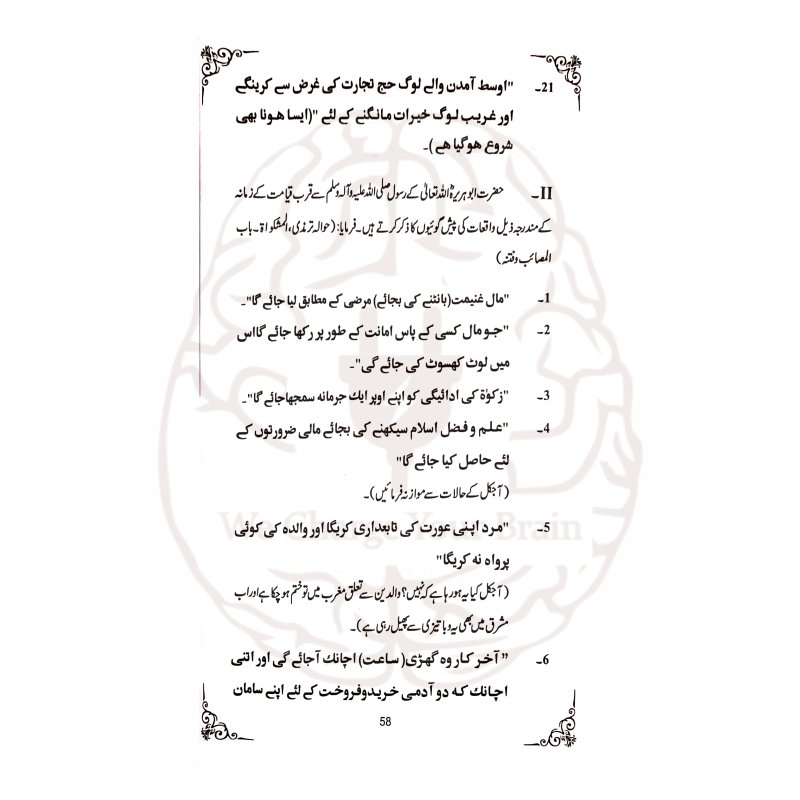 21۔ "اوسط آمدن والے لوگ حج تجارت کی غرض سے کرینگے
اور غریب لوگ خیرات مانگنے کے لئے "(ایسا ہونا بھی
شروع ہوگیا ہے)۔
II۔ حضرت ابوہریرہؓ اللہ تعالیٰ کے رسول صلی اللہ علیہ وآلہ وسلم سے قرب قیامت کے زمانہ
کے مندرجہ ذیل واقعات کی پیش گوئیوں کا ذکر کرتے ہیں۔ فرمایا: (حوالہ ترمذی، المشکواۃ۔ باب
المصائب وفتنہ)
1۔ "مال غنیمت (بانٹنے کی بجائے) مرضی کے مطابق لیا جائے گا"۔
2۔ "جو مال کسی کے پاس امانت کے طور پر رکھا جائے گا اس
میں لوٹ کھسوٹ کی جائے گی"۔
3۔ "زکوٰۃ کی ادائیگی کو اپنے اوپر ایک جرمانہ سمجھا جائے گا"۔
4۔ "علم و فضل اسلام سیکھنے کی بجائے مالی ضرورتوں کے
لئے حاصل کیا جائے گا"
(آجکل کے حالات سے موازنہ فرمائیں)۔
We Change Your Brain
5۔ "مرد اپنی عورت کی تابعداری کریگا اور والدہ کی کوئی
پرواہ نہ کریگا"
(آجکل کیا یہ ہو رہا ہے کہ نہیں؟ والدین سے تعلق مغرب میں تو ختم ہو چکا ہے اور اب
مشرق میں بھی یہ وبا تیزی سے پھیل رہی ہے)۔
6۔ "آخر کار وہ گھڑی (ساعت) اچانک آجائے گی اور اتنی
اچانک کہ دو آدمی خرید و فروخت کے لئے اپنے سامان
58